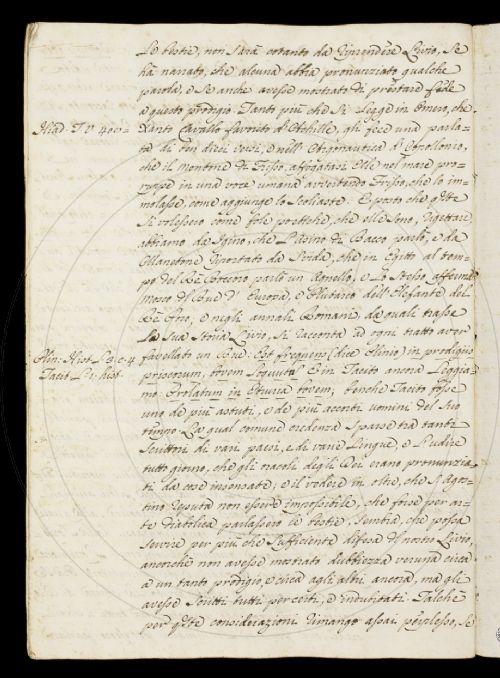 le bestie, non sarà cotanto da riprendere Livio, se
hà narrato, che alcuna abbia pronunziato qualche
parola, e se anche avesse mostrato di prestare fede
a questo prodigio. Tanto più che si legge in Omero, che
Iliad. T. V. 400:= Xanto Cavallo favorito d'Achille, gli fece una parla-
ta di ben dieci versi, e nell' Argonautica d'Apollonio,
che il Montone di Frisso, affogatasi Elle nel mare pro-
ruppe in una voce umana avvertendo Frisso, che lo im-
molasse, come aggiunge lo Scoliaste. E posto che qste
si volessero come fole poetiche, che elle sono, rigettare
abbiamo da Igino, che l'Asino di Bacco parlò, e da
Manetone riportato da Svida, che in Egitto al tem-
po del Rè Boccoro parlò un Agnello, e lo stesso afferma
Mosco del Bue d' Europa, e Plutarco dell' Elefante del
Rè Poro, e negli annali Romani, da quali trasse
la sua Storia Livio, si racconta ad ogni tratto aver
Plin: Hist. L. 8. c. 4 favellato un Bue: Est frequens (dice Plinio) in prodigiis
Tacit. L. 1. hist. priscorum, bovem locutum. E in Tacito ancora leggia-
mo. Prolatum in Etruria bovem; benche Tacito fosse
uno de più astuti, e de più accorti uomini del suo
tempo. La qual comune credenza sparsa trà tanti
Scrittori di vari paesi, e di varie Lingue, e l'udire
tutto giorno, che gli oracoli degli Dei erano pronunzia-
ti da cose insensate; e il vedere in oltre, che S. Ago-
stino reputa non essere impossibile, che forse per ar-
te diabolica parlassero le bestie, sembra, che possa
servire per più che sufficiente difesa del nostro Livio,
ancorchè non avesse mostrato dubbiezza veruna circa
a un tanto prodigio, e circa agli altri ancora, ma gli
avesse scritti tutti per certi, e indubitati. Talchè
per qste considerazioni rimango assai perplesso, se